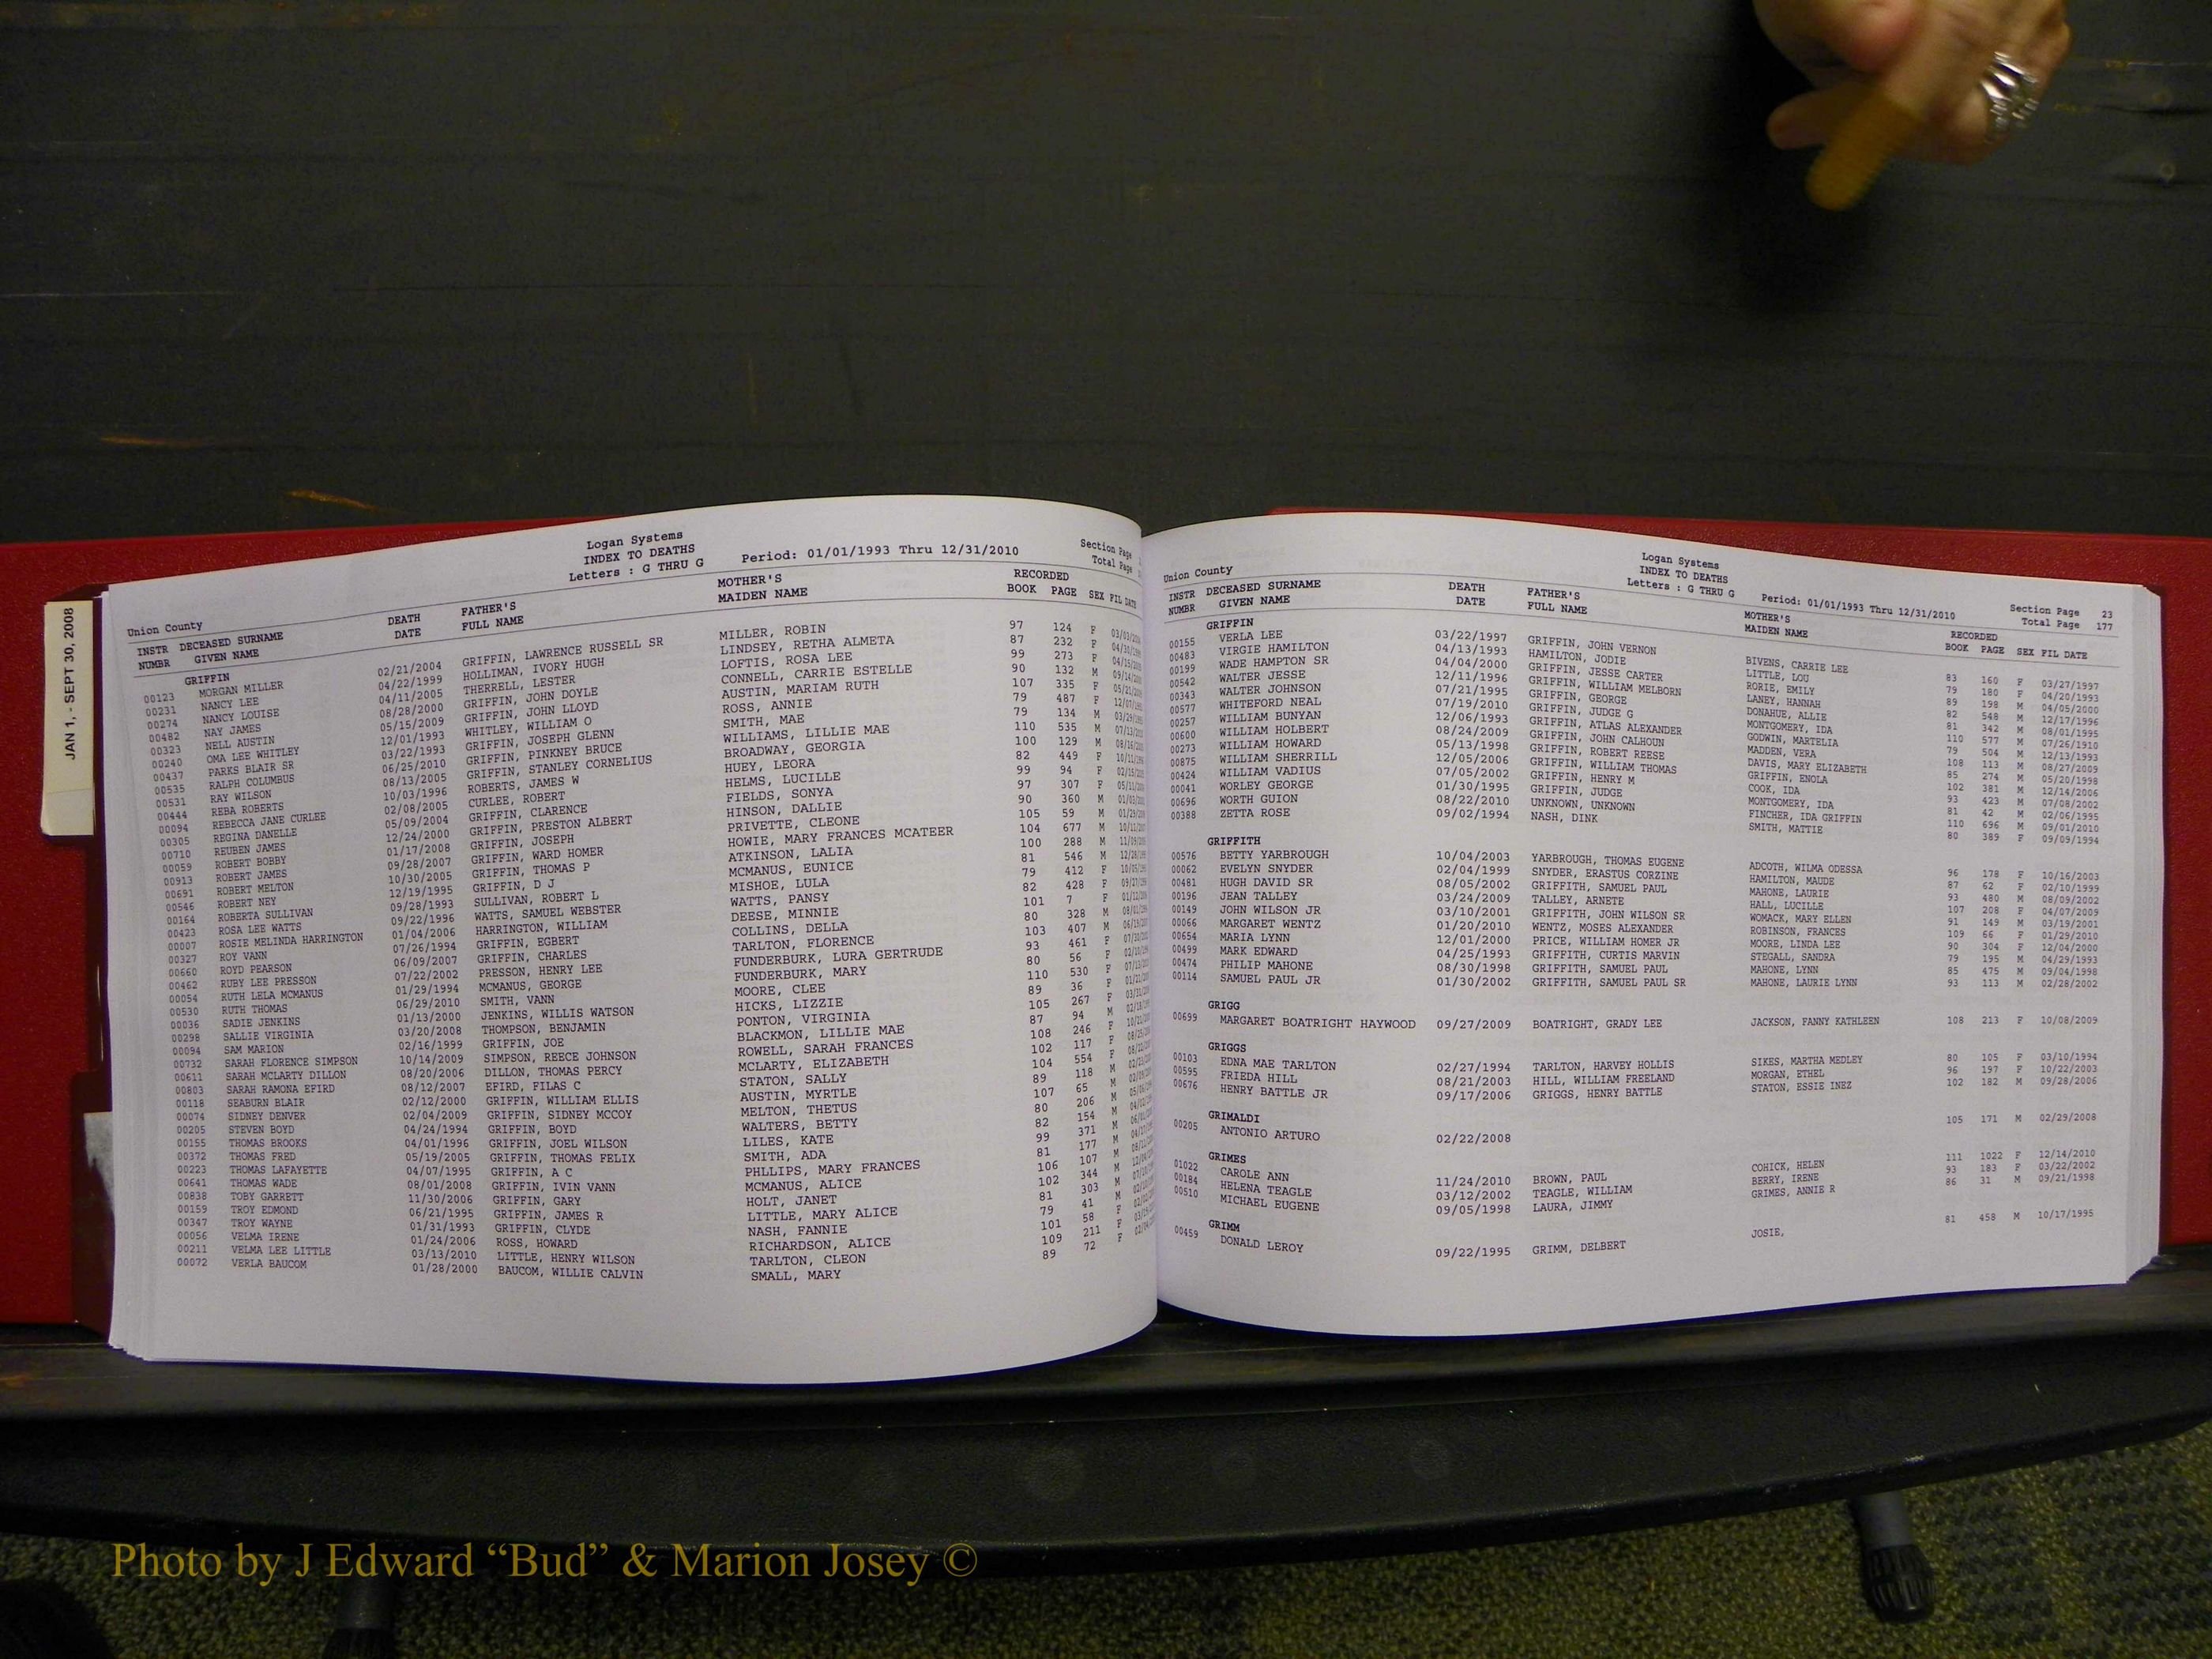 JAN 1, - SEPT 30, 2008
Logan Systems
INDEX TO DEATHS
Letters : G THRU G Period: 01/01/1993 Thru 12/31/2010 Section Page
Union County Total Page
INSTR DECEASED SURNAME DEATH FATHER'S MOTHER'S RECORDED
NUMBR GIVEN NAME DATE FULL NAME MAIDEN NAME BOOK PAGE SEX FIL DATE
GRIFFIN
00123 MORGAN MILLER 02/21/2004 GRIFFIN, LAWRENCE RUSSELL SR MILLER, ROBIN 97 124 F
00231 NANCY LEE 04/22/1999 HOLLIMAN, IVORY HUGH LINDSEY, RETHA ALMETA 87 232 F
00274 NANCY LOUISE 04/11/2005 THERRELL, LESTER LOFTIS, ROSA LEE 99 273 F
00482 NAY JAMES 08/28/2000 GRIFFIN, JOHN DOYLE CONNELL, CARRIE ESTELLE 90 132 M
00323 NELL AUSTIN 05/15/2009 GRIFFIN, JOHN LLOYD AUSTIN, MARIAM RUTH 107 335 F
00240 OMA LEE WHITLEY 12/01/1993 WHITLEY, WILLIAM O ROSS, ANNIE 79 487 F
00437 PARKS BLAIR SR 03/22/1993 GRIFFIN, JOSEPH GLENN SMITH, MAE 79 134 M
00535 RALPH COLUMBUS 06/25/2010 GRIFFIN, PINKNEY BRUCE WILLIAMS, LILLIE MAE 110 535 M
00531 RAY WILSON 08/13/2005 GRIFFIN, STANLEY CORNELIUS BROADWAY, GEORGIA 100 129 M
00444 REBA ROBERTS 10/03/1996 ROBERTS, JAMES W HUEY, LEORA 82 449 F
00094 REBECCA JANE CURLEE 02/08/2005 CURLEE, ROBERT HELMS, LUCILLE 99 94 F
00305 REGINA DANELLE 05/09/2004 GRIFFIN, CLARENCE FIELDS, SONYA 97 307 F
00710 REUBEN JAMES 12/24/2000 GRIFFIN, PRESTON ALBERT HINSON, DALLIE 90 360 M
00059 ROBERT BOBBY 01/17/2008 GRIFFIN, JOSEPH PRIVETTE, CLEONE 105 59 M
00913 ROBERT JAMES 09/28/2007 GRIFFIN, WARD HOMER HOWIE, MARY FRANCES MCATEER 104 677 M
00691 ROBERT MELTON 10/30/2005 GRIFFIN, THOMAS P ATKINSON, LALIA 100 288 M
00546 ROBERT NEY 12/19/1995 GRIFFIN, D J MCMANUS, EUNICE 81 546 M
00164 ROBERTA SULLIVAN 09/28/1993 SULLIVAN, ROBERT L MISHOE, LULA 79 412 F
00423 ROSA LEE WATTS 09/22/1996 WATTS, SAMUEL WEBSTER WATTS, PANSY 82 428 F
00007 ROSIE MELINDA HARRINGTON 01/04/2006 HARRINGTON, WILLIAM DEESE, MINNIE 101 7 F
00327 ROY VANN 07/26/1994 GRIFFIN, EGBERT COLLINS, DELLA 80 328 M
00660 ROYD PEARSON 06/09/2007 GRIFFIN, CHARLES TARLTON, FLORENCE 103 407 M
00462 RUBY LEE PRESSON 07/22/2002 PRESSON, HENRY LEE FUNDERBURK, LURA GERTRUDE 93 461 F
00054 RUTH LELA MCMANUS 01/29/1994 MCMANUS, GEORGE FUNDERBURK, MARY 80 56 F
00530 RUTH THOMAS 06/29/2010 SMITH, VANN MOORE, CLEE 110 530 F
00036 SADIE JENKINS 01/13/2000 JENKINS, WILLIS WATSON HICKS, LIZZIE 89 36 F
00298 SALLIE VIRGINIA 03/20/2008 THOMPSON, BENJAMIN PONTON, VIRGINIA 105 267 F
00094 SAM MARION 02/16/1999 GRIFFIN, JOE BLACKMON, LILLIE MAE 87 94 M
00732 SARAH FLORENCE SIMPSON 10/14/2009 SIMPSON, REECE JOHNSON ROWELL, SARAH FRANCES 108 246 F
00611 SARAH MCLARTY DILLON 08/20/2006 DILLON, THOMAS PERCY MCLARTY, ELIZABETH 102 117 F
00803 SARAH RAMONA EFIRD 08/12/2007 EFIRD, FILAS C STATON, SALLY 104 554 F
00118 SEABURN BLAIR 02/12/2000 GRIFFIN, WILLIAM ELLIS AUSTIN, MYRTLE 89 118 M
00074 SIDNEY DENVER 02/04/2009 GRIFFIN, SIDNEY MCCOY MELTON, THETUS 107 65 M
00205 STEVEN BOYD 04/24/1994 GRIFFIN, BOYD WALTERS, BETTY 80 206 M
00155 THOMAS BROOKS 04/01/1996 GRIFFIN, JOEL WILSON LILES, KATE 82 154 M
00372 THOMAS FRED 05/19/2005 GRIFFIN, THOMAS FELIX SMITH, ADA 99 371 M
00223 THOMAS LAFAYETTE 04/07/1995 GRIFFIN, A C PHLLIPS, MARY FRANCES 81 177 M
00641 THOMAS WADE 08/01/2008 GRIFFIN, IVIN VANN MCMANUS, ALICE 106 107 M
00838 TOBY GARRETT 11/30/2006 GRIFFIN, GARY HOLT, JANET 102 344 M
00159 TROY EDMOND 06/21/1995 GRIFFIN, JAMES R LITTLE, MARY ALICE 81 303 M
00347 TROY WAYNE 01/31/1993 GRIFFIN, CLYDE NASH, FANNIE 79 41 M
00056 VELMA IRENE 01/24/2006 ROSS, HOWARD RICHARDSON, ALICE 101 58 F
00211 VELMA LEE LITTLE 03/13/2010 LITTLE, HENRY WILSON TARLTON, CLEON 109 211 F
00072 VERLA BAUCOM 01/28/2000 BAUCOM, WILLIE CALVIN SMALL, MARY 89 72 F
Logan Systems
INDEX TO DEATHS
Letters : G THRU G Period: 01/01/1993 Thru 12/31/2010 Section Page 23
Union County Total Page 177
INSTR DECEASED SURNAME DEATH FATHER'S MOTHER'S RECORDED
NUMBR GIVEN NAME DATE FULL NAME MAIDEN NAME BOOK PAGE SEX FIL DATE
GRIFFIN
00155 VERLA LEE 03/22/1997 GRIFFIN, JOHN VERNON BIVENS, CARRIE LEE 83 160 F 03/27/1997
00483 VIRGIE HAMILTON 04/13/1993 HAMILTON, JODIE LITTLE, LOU 79 180 F 04/20/1993
00199 WADE HAMPTON SR 04/04/2000 GRIFFIN, JESSE CARTER RORIE, EMILY 89 198 M 04/05/2000
00542 WALTER JESSE 12/11/1996 GRIFFIN, WILLIAM MELBORN LANEY, HANNAH 82 548 M 12/17/1996
00343 WALTER JOHNSON 07/21/1995 GRIFFIN, GEORGE DONAHUE, ALLIE 81 342 M 08/01/1995
00577 WHITEFORD NEAL 07/19/2010 GRIFFIN, JUDGE G MONTGOMERY, IDA 110 577 M 07/26/1910
00257 WILLIAM BUNYAN 12/06/1993 GRIFFIN, ATLAS ALEXANDER GODWIN, MARTELIA 79 504 M 12/13/1993
00600 WILLIAM HOLBERT 08/24/2009 GRIFFIN, JOHN CALHOUN MADDEN, VERA 108 113 M 08/27/2009
00273 WILLIAM HOWARD 05/13/1998 GRIFFIN, ROBERT REESE DAVIS, MARY ELIZABETH 85 274 M 05/20/1998
00875 WILLIAM SHERRILL 12/05/2006 GRIFFIN, WILLIAM THOMAS GRIFFIN, ENOLA 102 381 M 12/14/2006
00424 WILLIAM VADIUS 07/05/2002 GRIFFIN, HENRY M COOK, IDA 93 423 M 07/08/2002
00041 WORLEY GEORGE 01/30/1995 GRIFFIN, JUDGE MONTGOMERY, IDA 81 42 M 02/06/1995
00696 WORTH GUION 08/22/2010 UNKNOWN, UNKNOWN FINCHER, IDA GRIFFIN 110 696 M 09/01/2010
00388 ZETTA ROSE 09/02/1994 NASH, DINK SMITH, MATTIE 80 389 F 09/09/1994
GRIFFITH
00576 BETTY YARBROUGH 10/04/2003 YARBROUGH, THOMAS EUGENE ADCOTH, WILMA ODESSA 96 178 F 10/16/2003
00062 EVELYN SNYDER 02/04/1999 SNYDER, ERASTUS CORZINE HAMILTON, MAUDE 87 62 F 02/10/1999
00481 HUGH DAVID SR 08/05/2002 GRIFFITH, SAMUEL PAUL MAHONE, LAURIE 93 480 M 08/09/2002
00196 JEAN TALLEY 03/24/2009 TALLEY, ARNETE HALL, LUCILLE 107 208 F 04/07/2009
00149 JOHN WILSON JR 03/10/2001 GRIFFITH, JOHN WILSON SR WOMACK, MARY ELLEN 91 149 M 03/19/2001
00066 MARGARET WENTZ 01/20/2010 WENTZ, MOSES ALEXANDER ROBINSON, FRANCES 109 66 F 01/29/2010
00654 MARIA LYNN 12/01/2000 PRICE, WILLIAM HOMER JR MOORE, LINDA LEE 90 304 F 12/04/2000
00499 MARK EDWARD 04/25/1993 GRIFFITH, CURTIS MARVIN STEGALL, SANDRA 79 195 M 04/29/1993
00474 PHILIP MAHONE 08/30/1998 GRIFFITH, SAMUEL PAUL MAHONE, LYNN 85 475 M 09/04/1998
00114 SAMUEL PAUL JR 01/30/2002 GRIFFITH, SAMUEL PAUL SR MAHONE, LAURIE LYNN 93 113 M 02/28/2002
GRIGG
00699 MARGARET BOATRIGHT HAYWOOD 09/27/2009 BOATRIGHT, GRADY LEE JACKSON, FANNY KATHLEEN 108 213 F 10/08/2009
GRIGGS
00103 EDNA MAE TARLTON 02/27/1994 TARLTON, HARVEY HOLLIS SIKES, MARTHA MEDLEY 80 105 F 03/10/1994
00595 FRIEDA HILL 08/21/2003 HILL, WILLIAM FREELAND MORGAN, ETHEL 96 197 F 10/22/2003
00676 HENRY BATTLE JR 09/17/2006 GRIGGS, HENRY BATTLE STATON, ESSIE INEZ 102 182 M 09/28/2006
GRIMALDI
00205 ANTONIO ARTURO 02/22/2008 105 171 M 02/29/2008
GRIMES
01022 CAROLE ANN 11/24/2010 BROWN, PAUL COHICK, HELEN 111 1022 F 12/14/2010
00184 HELENA TEAGLE 03/12/2002 TEAGLE, WILLIAM BERRY, IRENE 93 183 F 03/22/2002
00510 MICHAEL EUGENE 09/05/1998 LAURA, JIMMY GRIMES, ANNIE R 86 31 M 09/21/1998
GRIMM
00459 DONALD LEROY 09/22/1995 GRIMM, DELBERT JOSIE, 81 458 M 10/17/1995
Photo by J Edward “Bud” & Marion Josey ©